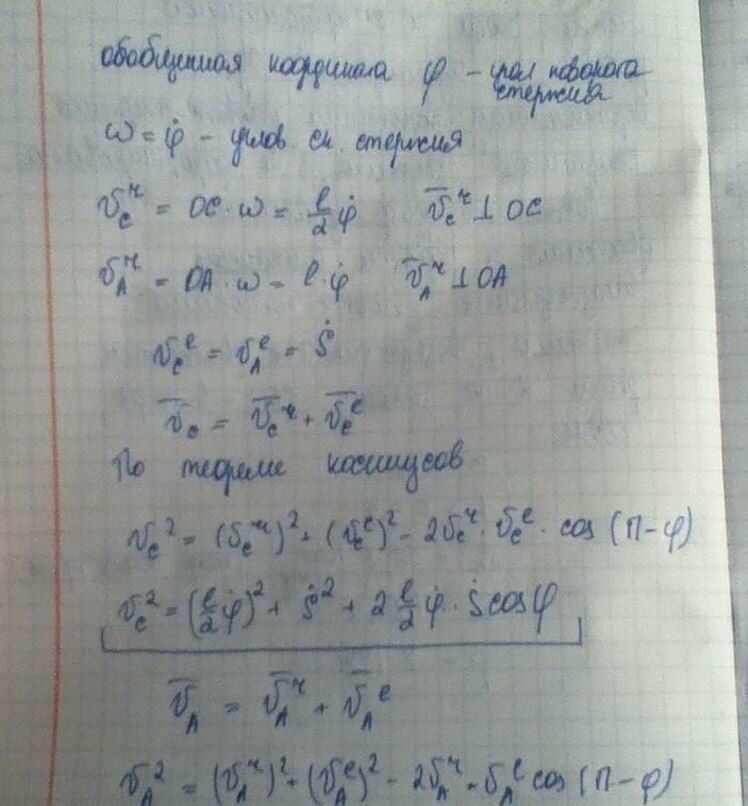 обобщенная координата φ – угол поворота
стержня
ω = φ̇ – углов. ск. стержня
v_c^r = OC·ω = l/2 φ̇   v̅_c^r ⊥ OC
v_A^r = OA·ω = l·φ̇   v̅_A^r ⊥ OA
v_c^e = v_A^e = ṡ
v̅_c = v̅_c^r + v̅_c^e
По теореме косинусов
v_c^2 = (v_c^r)^2 + (v_c^e)^2 – 2v_c^r · v_c^e · cos (π – φ)
v_c^2 = (l/2 φ̇)^2 + ṡ^2 + 2 l/2 φ̇ · ṡ cos φ
v̅_A = v̅_A^r + v̅_A^e
v_A^2 = (v_A^r)^2 + (v_A^e)^2 – 2v_A^r · v_A^e cos (π – φ)